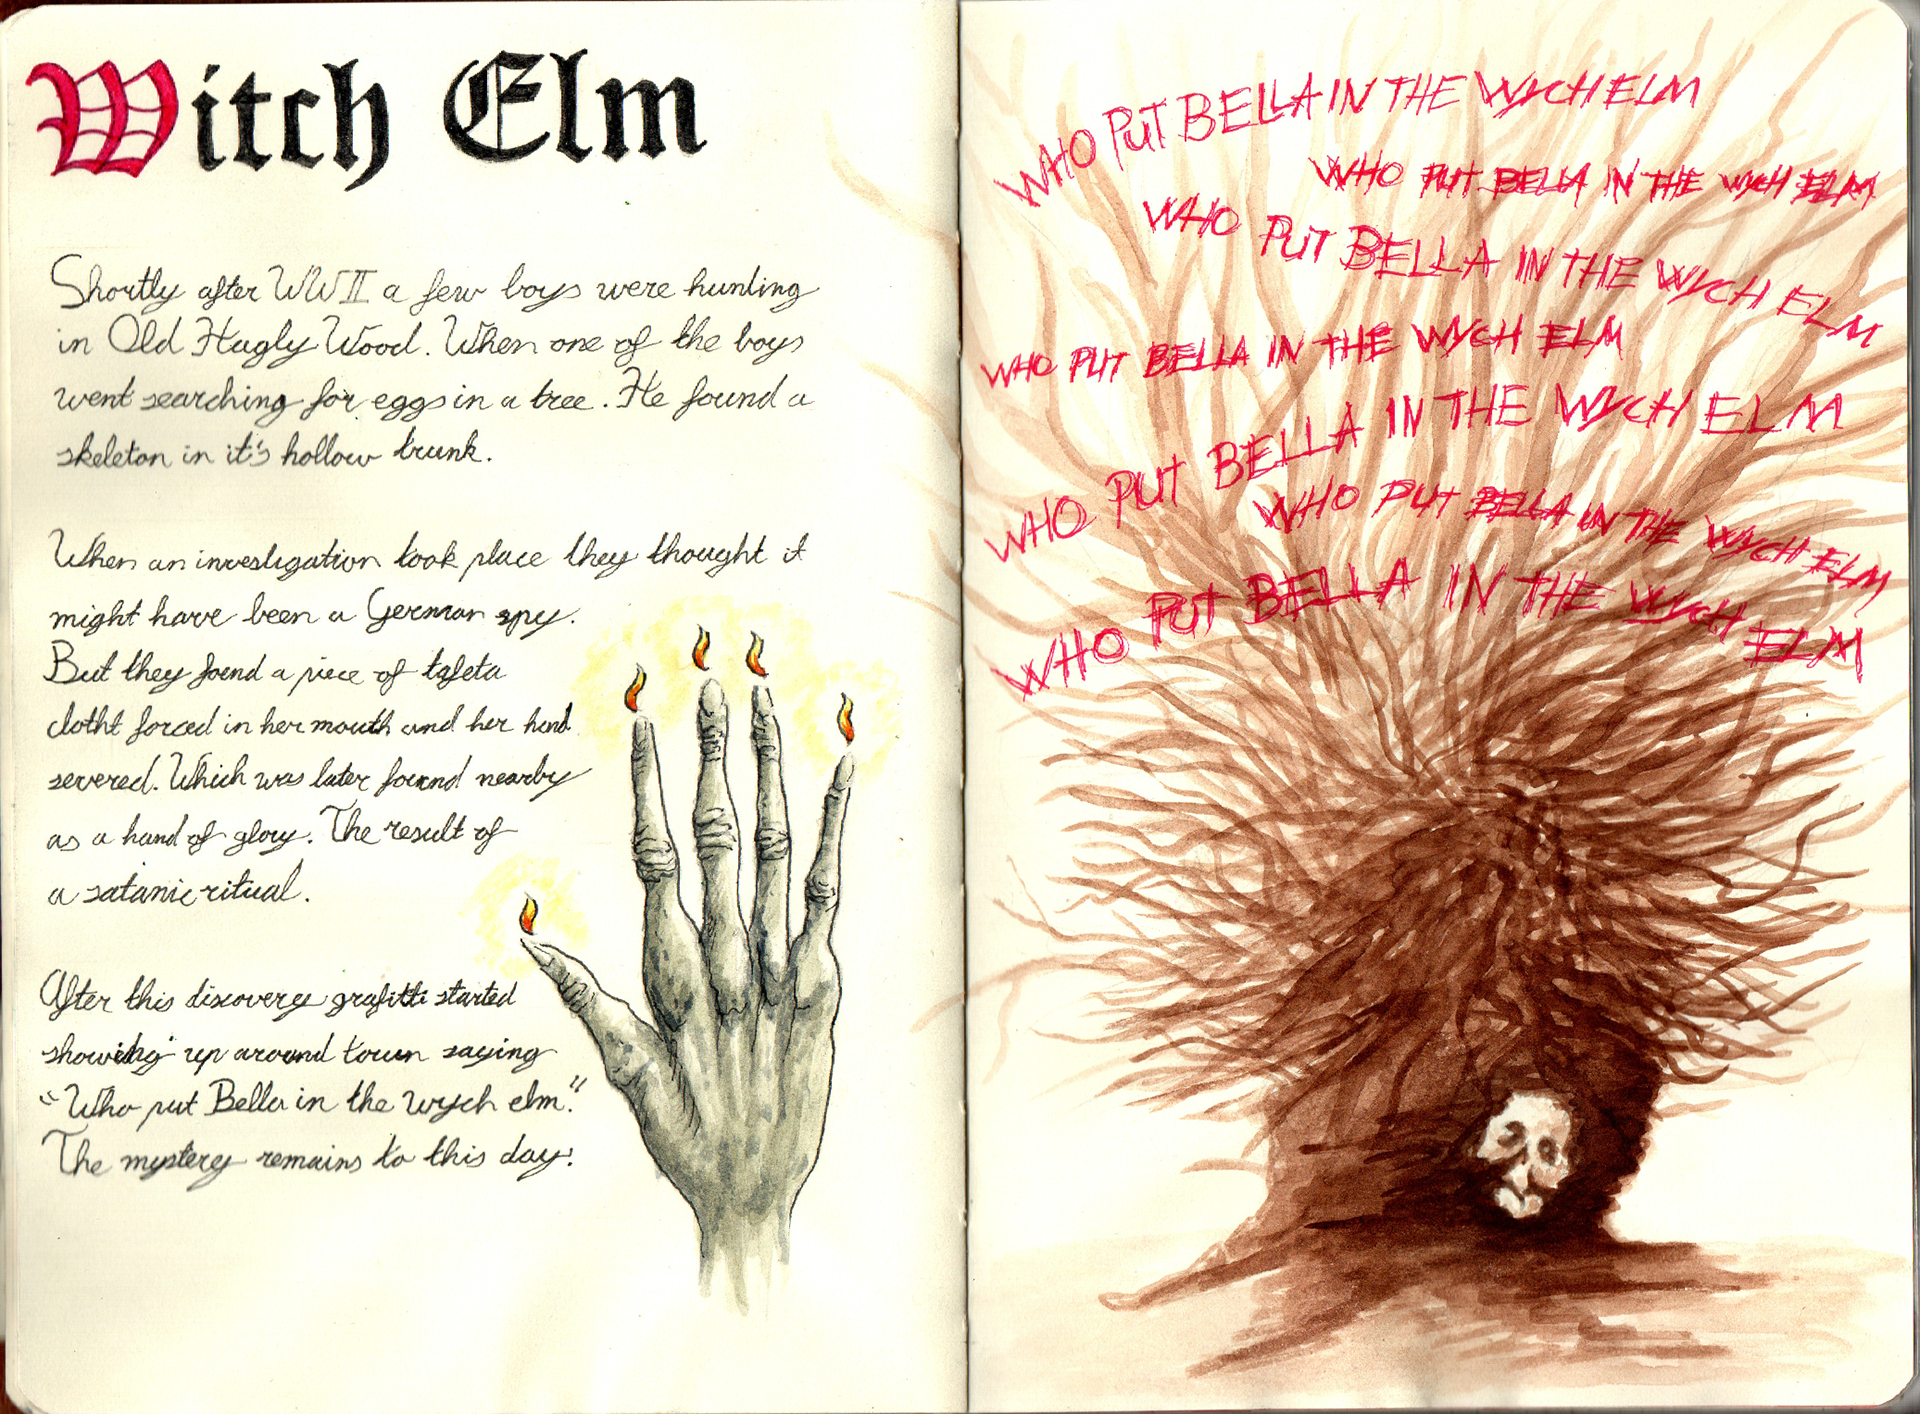 Witch Elm
Shortly after WWII a few boys were hunting
in Old Hagly Wood. When one of the boys
went searching for eggs in a tree. He found a
skeleton in it's hollow trunk.
When an investigation took place they thought it
might have been a German spy.
But they foend a piece of tafeta
clotht forced in her mouth and her hand
severed. Which was later found nearby
as a hand of glory. The result of
a satanic ritual.
After this discovery grafitti started
showing up around town saying
"Who put Bella in the wych elm."
The mystery remains to this day.
WHO PUT BELLA IN THE WYCH ELM
WHO PUT BELLA IN THE WYCH ELM
WHO PUT BELLA IN THE WYCH ELM
WHO PUT BELLA IN THE WYCH ELM
WHO PUT BELLA IN THE WYCH ELM
WHO PUT BELLA IN THE WYCH ELM
WHO PUT BELLA IN THE WYCH ELM